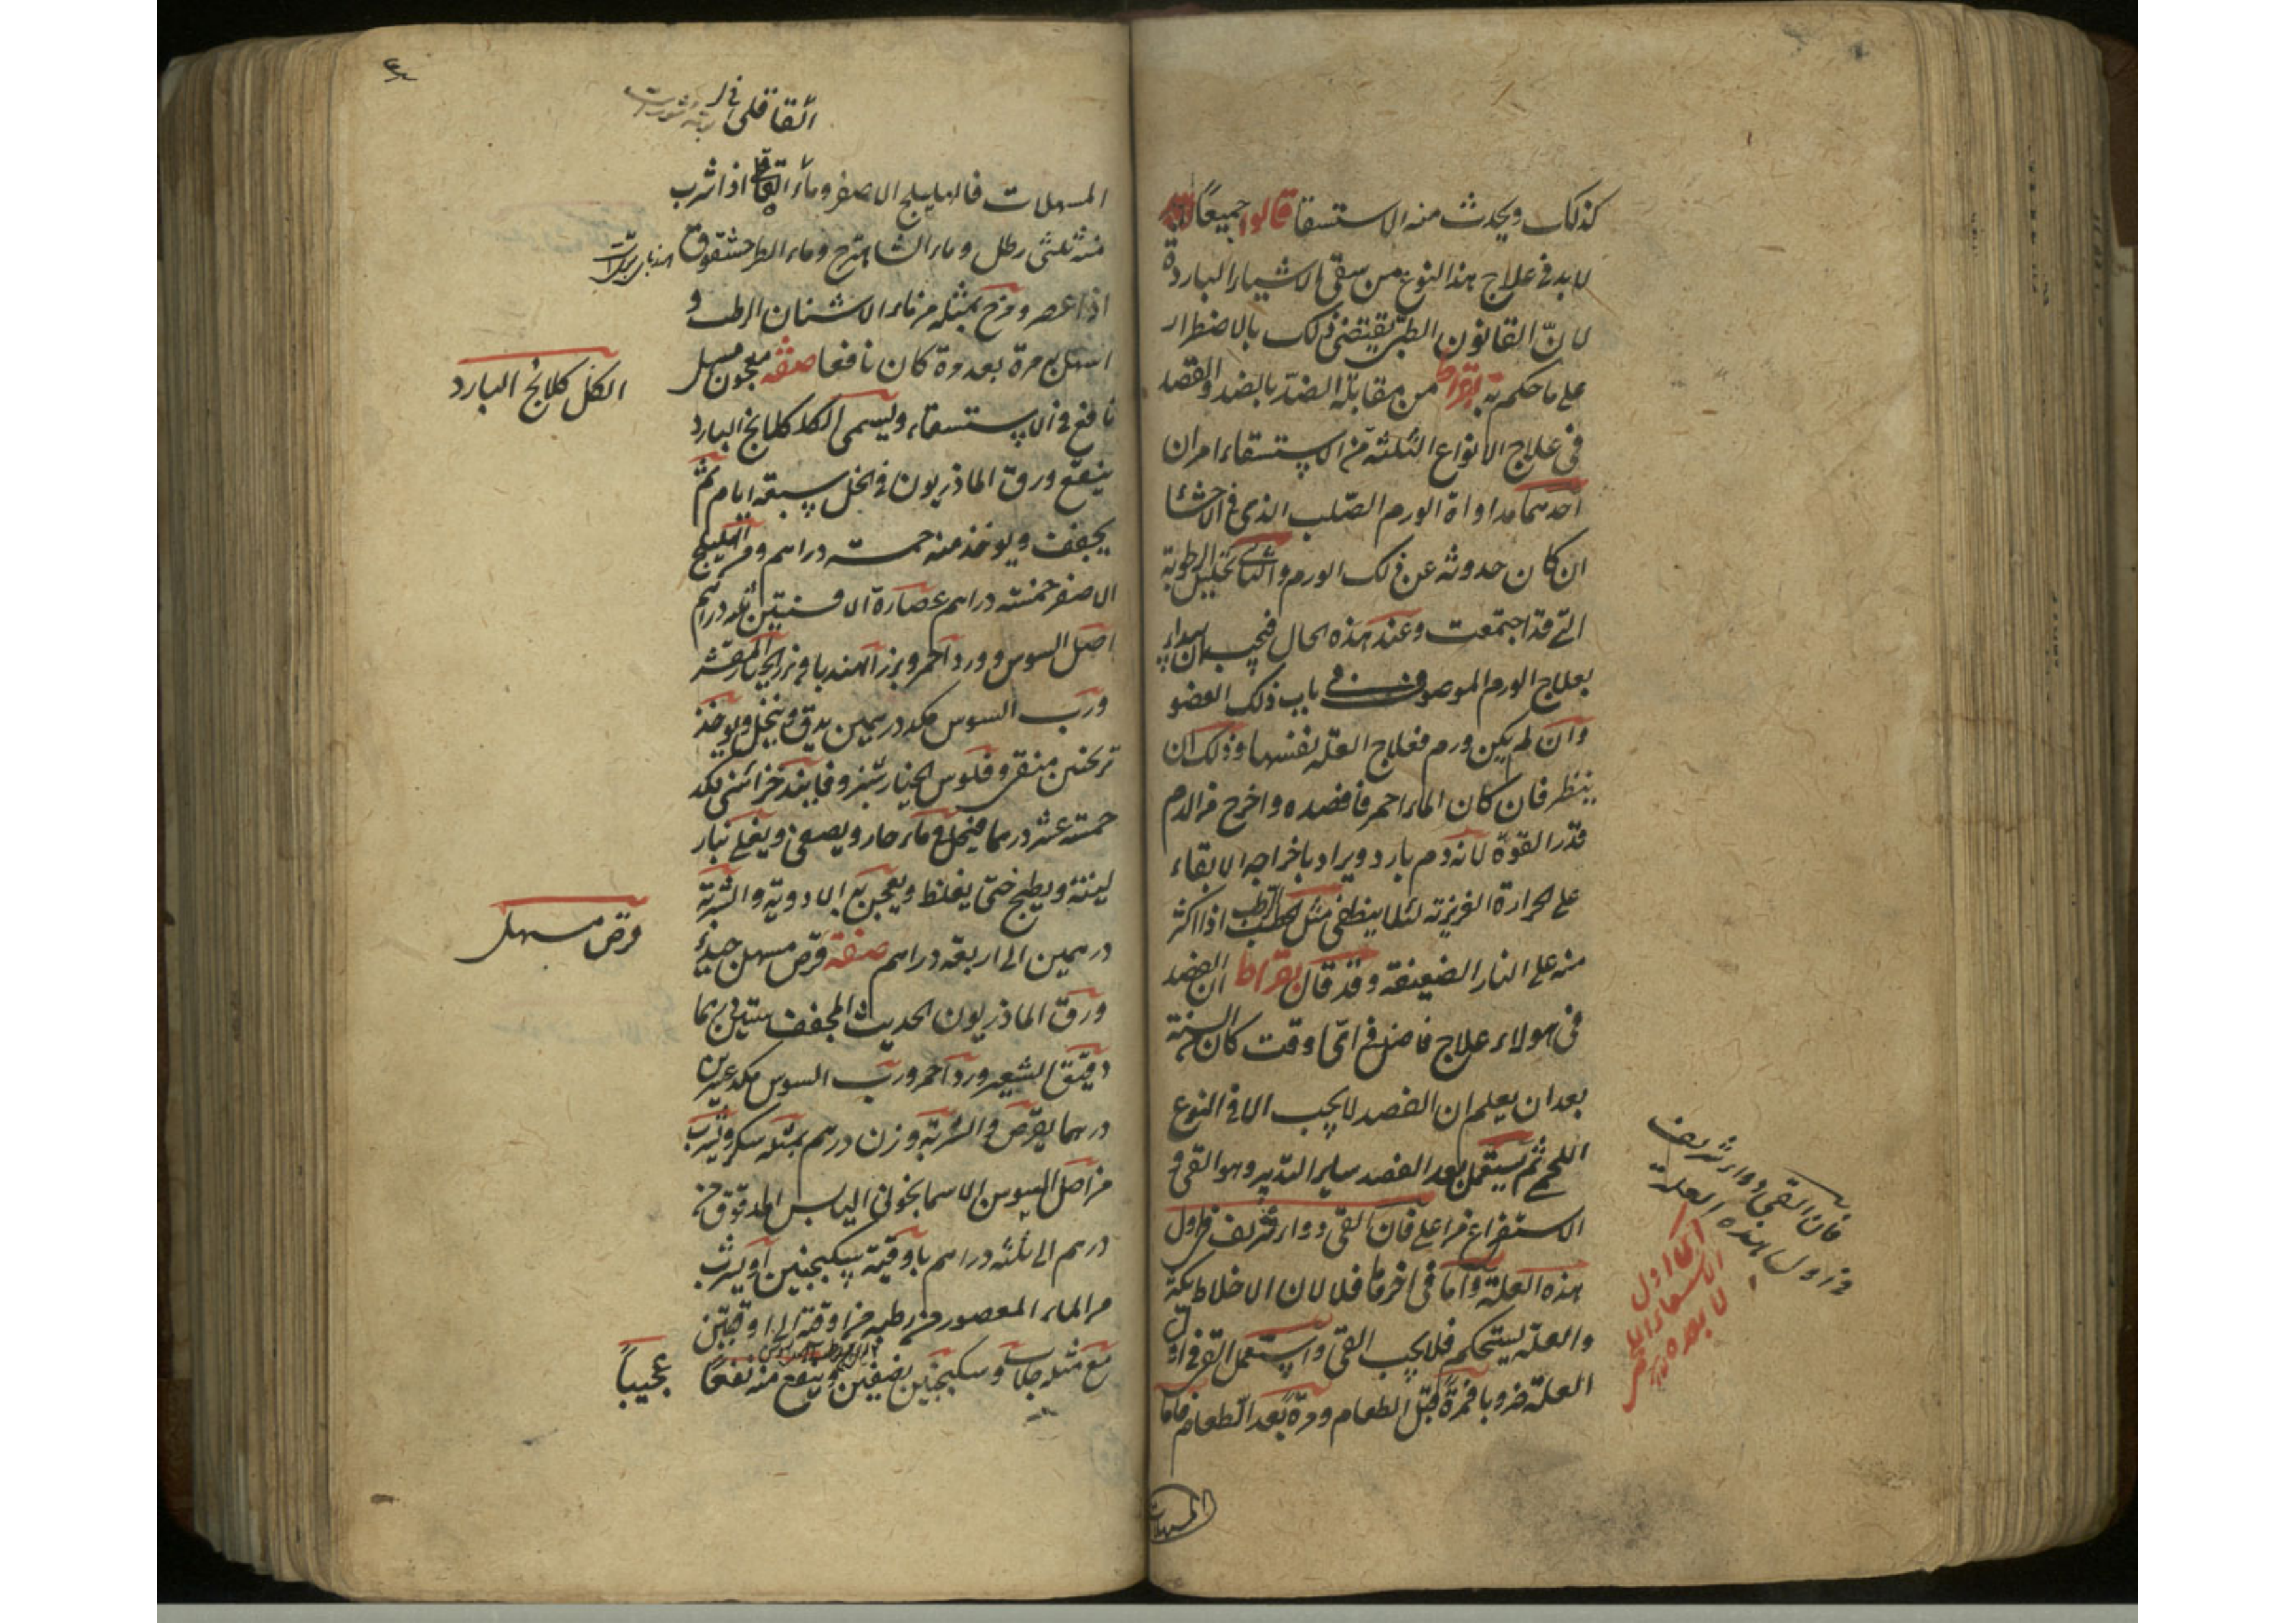 كذلك ويحدث منه الاستسقا قالوا جميعاً
لا بد في علاج هذا النوع من سقي الاشياء الباردة
لانّ القانون الطبى يقتضى ذلك بالاضطرار
على ما حكم به بقراط من مقابلة الضدّ بالضد والقصد
في علاج الانواع الثلثة من الاستسقاء امران
احدهما مداواة الورم الصّلب الذى في الاحشا
ان كان حدوثه عن ذلك الورم والثانى تحليل الرطوبة
التى قد اجتمعت وعند هذه الحال فيجب ان
بعلاج الورم الموصوف في باب ذلك العضو
وان لم يكن ورم فعلاج العلّة نفسها وذلك ان
ينظر فان كان الماء احمر فافصده واخرج من الدم
قدر القوّة لانه دم بارد ويراد باخراجه الابقاء
على الحرارة الغريزية لئلا ينطفى مثل الحطب الرطب اذا اكثر
منه على النار الضعيفة وقد قال بقراط ان الفصد
فى هولاء علاج فاضل في اىّ وقت كان من السنة
بعد ان يعلم ان الفصد لا يجب الا في النوع
اللحمى ثم يستعمل بعد الفصد ساير التدبير وهو القى و
الاستفراغ من اعلى فان القى دواء شريف في اول
هذه العلّة وامّا فى اخرها فلا لان الاخلاط
والعلّة يستحكم فلا يجب القى واستعمل القى في
العلّة ضروبا فمرة قبل الطعام ومرة بعد الطعام فاما
فان القى دواء شريف
في اول هذه العلة
المسهلات
القاقلى
المسهلات فالهليلج الاصفر وماء القاقلى اذا شرب
منه ثلثى رطل وماء الشاهترج وماء الطرخشقوق
اذا عصر ومزج بمثله من ماء الاشنان الرطب و
اسهل به مرة بعد مرة كان نافعا صفة معجون مسهل
نافع في الاستسقاء ويسمى الكلكلانج البارد
الكلكلانج البارد
ينقع ورق الماذريون في الخل سبعة ايام ثم
يجفف ويوخذ منه خمسة دراهم ومن الهليلج
الاصفر خمسة دراهم عصارة الافسنتين ثلثة دراهم
اصل السوس وورد احمر وبزر الهندبا وبزر الخيار المقشر
وربّ السوس مكد درهمين يدق وينخل ويوخذ
ترنجبين منقى وفلوس الخيارشنبر وفانيد خزائنى مكد
خمسة عشر درهما فيحل في ماء حار ويصفى ويغلى بنار
لينة ويطبخ حتى يغلظ ويعجن به الادوية والشربة
درهمين الى اربعة دراهم صفة قرص مسهل جيد
قرص مسهل
ورق الماذريون الحديث المجفف ستين درهما
دقيق الشعير ورد احمر وربّ السوس مكد عشرين
درهما يقرّص والشربة وزن درهم بمثله سكر ويشرب
من اصل السوس الاسمانجونى اليابس المدقوق من
درهم الى ثلثة دراهم باوقية سكنجبين او يشرب
من الماء المعصور من رطبه من اوقية الى اوقيتين
مع مثله جلاب وسكنجبين نصفين وينفع منه نفعا عجيباً